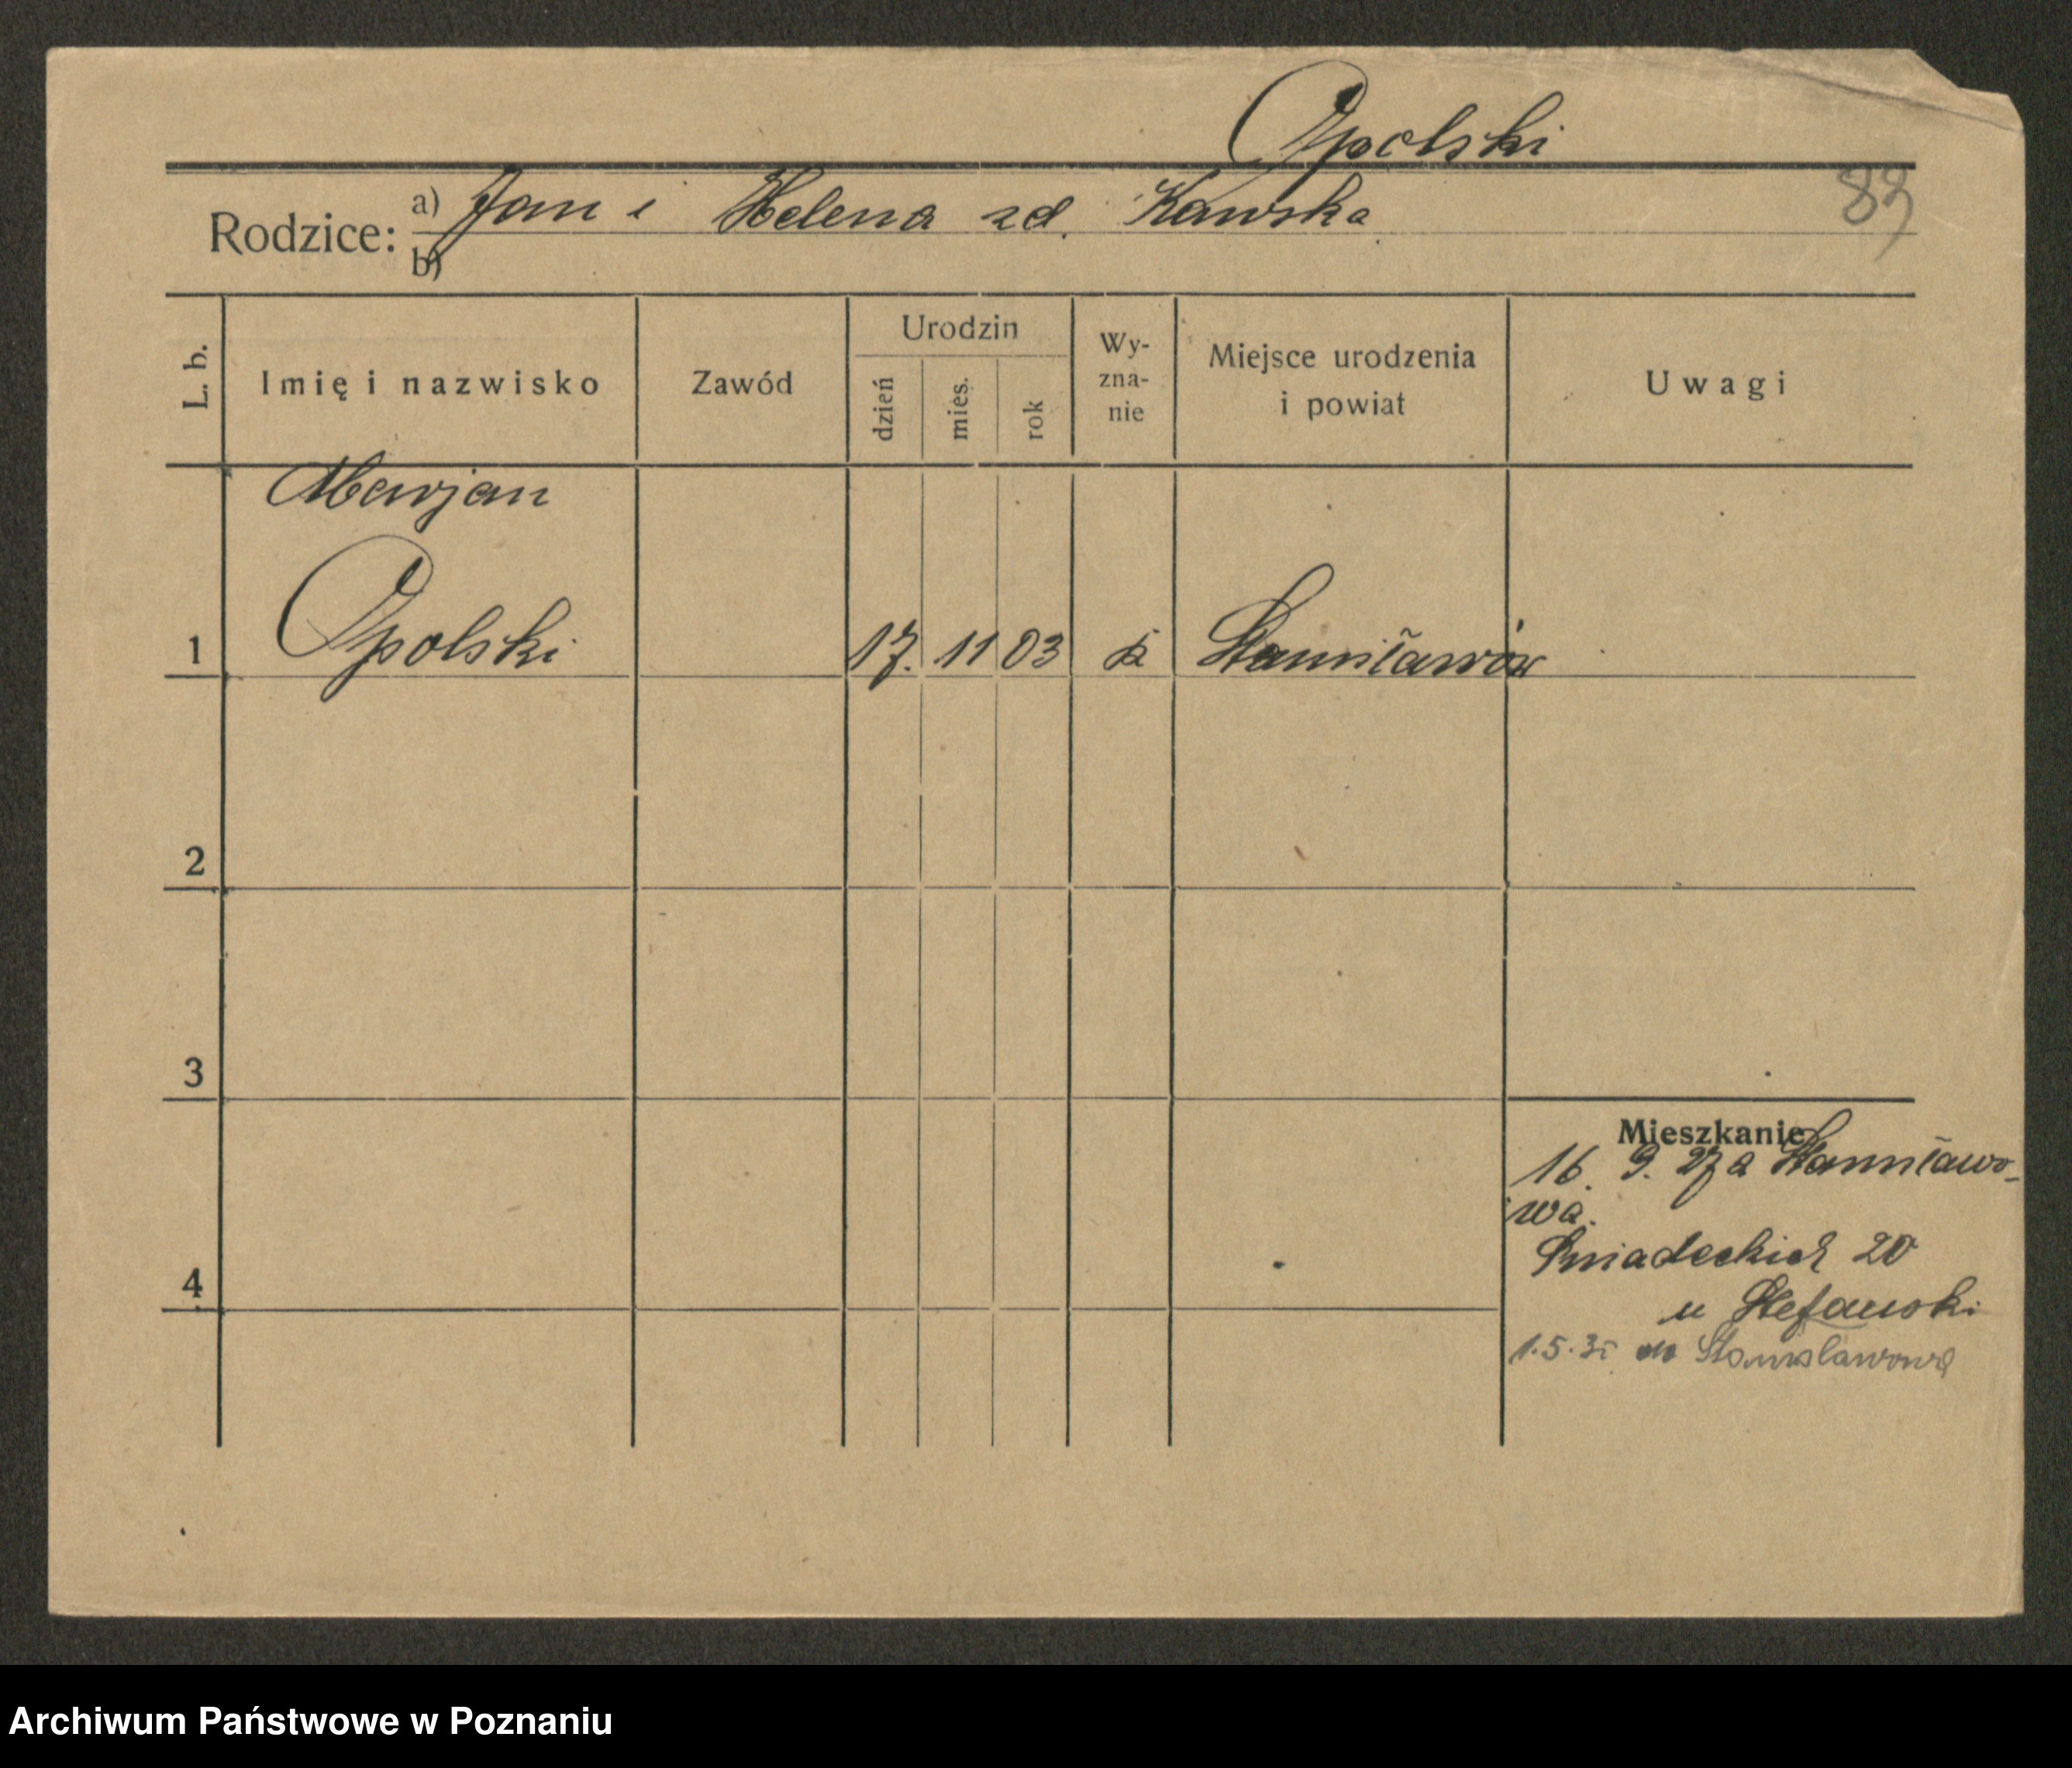 Opolski
Rodzice: a) Jan i Helena zd. Kawska
b)
L. b.
Imię i nazwisko
Zawód
Urodzin
dzień
mies.
rok
Wy-
zna-
nie
Miejsce urodzenia
i powiat
Uwagi
Marjan
1 Opolski 17. 11 03 k Stanisławów
2
3
4
Mieszkanie
16. 9. 27 z Stanisławo-
wa.
Śniadeckich 20
u Stefański
1.5.35 do Stanisławowa
Archiwum Państwowe w Poznaniu